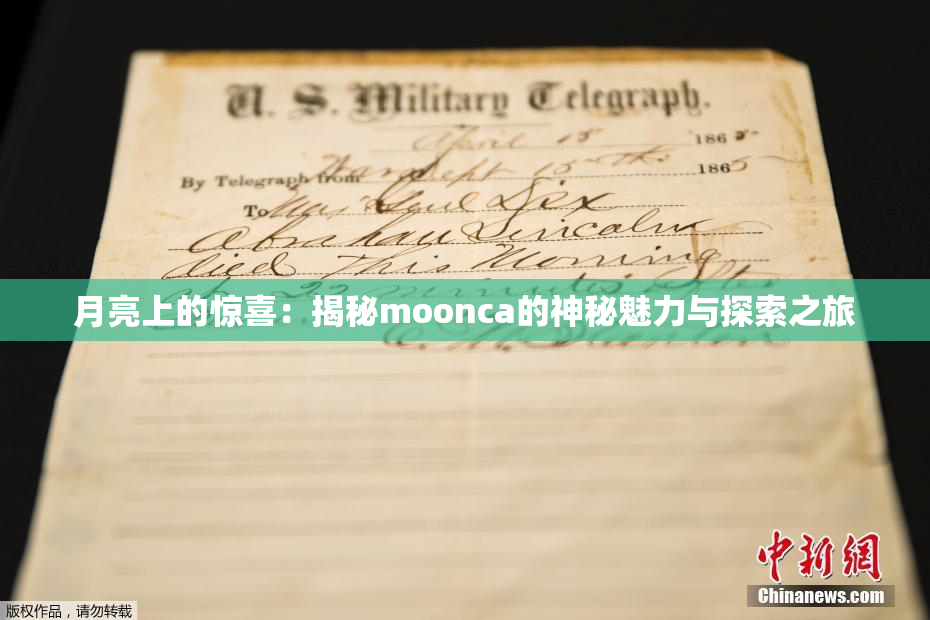 U. S. Military Telegraph.
April 15 1865
By Telegraph from War Dept 15th 1865
To Maj Genl Dix
Abraham Lincoln
died This Morning
at 22 minutes after
月亮上的惊喜：揭秘moonca的神秘魅力与探索之旅
E. M. Stanton
中新网
Chinanews.com
版权作品，请勿转载